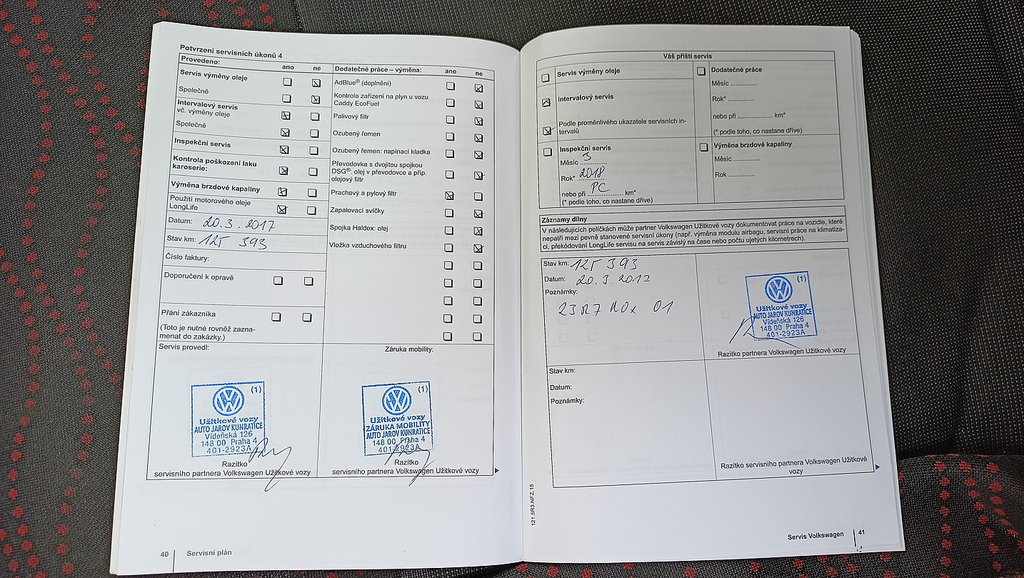 Potvrzení servisních úkonů 4
Provedeno: ano ne
Servis výměny oleje
Společně
Intervalový servis
vč. výměny oleje
Společně
Inspekční servis
Kontrola poškození laku
karoserie:
Výměna brzdové kapaliny
Použití motorového oleje
LongLife
Datum: 20.3.2017
Stav km: 125 393
Číslo faktury:
Doporučení k opravě
Přání zákazníka
(Toto je nutné rovněž zazna-
menat do zakázky.)
Servis provedl:
(1)
Užitkové vozy
AUTO JAROV KUNRATICE
Vídeňská 126
148 00 Praha 4
401-2923A
Razítko
servisního partnera Volkswagen Užitkové vozy
Dodatečné práce – výměna: ano ne
AdBlue® (doplnění)
Kontrola zařízení na plyn u vozu
Caddy EcoFuel
Palivový filtr
Ozubený řemen
Ozubený řemen: napínací kladka
Převodovka s dvojitou spojkou
DSG®: olej v převodovce a příp.
olejový filtr
Prachový a pylový filtr
Zapalovací svíčky
Spojka Haldex: olej
Vložka vzduchového filtru
Záruka mobility:
(1)
Užitkové vozy
ZÁRUKA MOBILITY
AUTO JAROV KUNRATICE
Vídeňská 126
148 00 Praha 4
401-2923A
Razítko
servisního partnera Volkswagen Užitkové vozy
40 Servisní plán
Váš příští servis
Servis výměny oleje
Intervalový servis
Podle proměnlivého ukazatele servisních in-
tervalů
Inspekční servis
Měsíc 3
Rok* 2018
nebo při PC km*
(* podle toho, co nastane dříve)
Dodatečné práce
Měsíc ..............
Rok* ..............
nebo při .............. km*
(* podle toho, co nastane dříve)
Výměna brzdové kapaliny
Měsíc ..............
Rok ..............
Záznamy dílny
V následujících políčkách může partner Volkswagen Užitkové vozy dokumentovat práce na vozidle, které
nepatří mezi pevně stanovené servisní úkony (např. výměna modulu airbagu, servisní práce na klimatiza-
ci, překódování LongLife servisu na servis závislý na čase nebo počtu ujetých kilometrech).
Stav km: 125 393
Datum: 20.3.2017
Poznámky:
01
(1)
Užitkové vozy
AUTO JAROV KUNRATICE
Vídeňská 126
148 00 Praha 4
401-2923A
Razítko partnera Volkswagen Užitkové vozy
Stav km:
Datum:
Poznámky:
Razítko servisního partnera Volkswagen Užitkové
vozy
121.5R3.NFZ.15
Servis Volkswagen 41